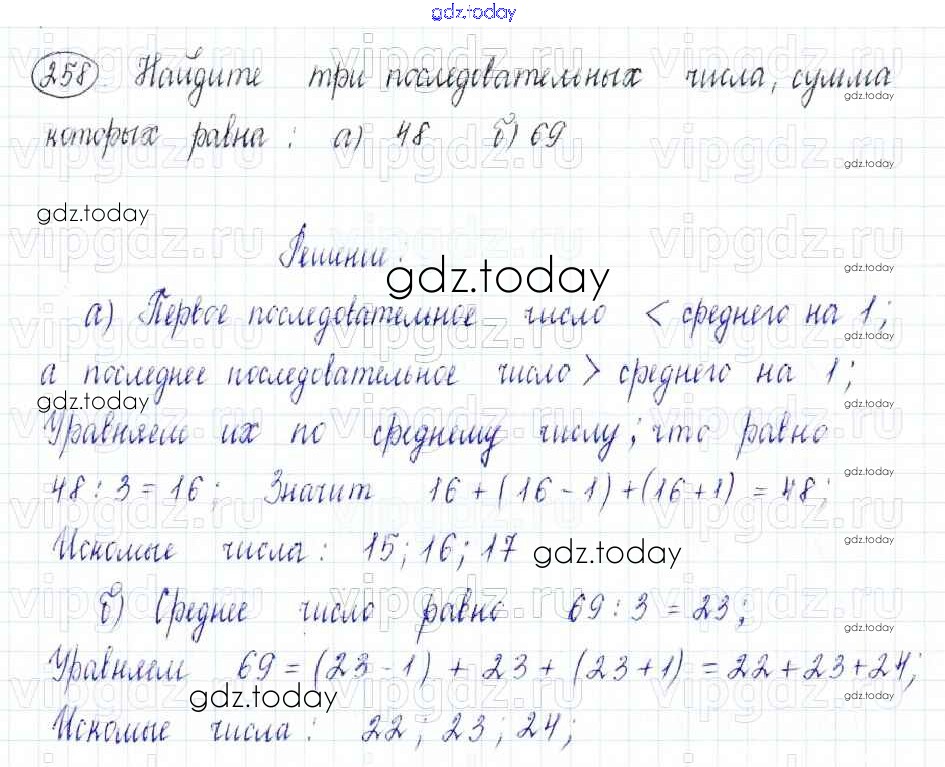 gdz.today
258. Найдите три последовательных числа, сумма
gdz.today
которых равна: а) 48 б) 69
gdz.today
gdz.today
Решение:
gdz.today
gdz.today
а) Первое последовательное число < среднего на 1;
gdz.today
а последнее последовательное число > среднего на 1;
gdz.today
gdz.today
Уравняем их по среднему числу; что равно
gdz.today
48 : 3 = 16; Значит 16 + (16 - 1) + (16 + 1) = 48;
Искомые числа: 15; 16; 17
gdz.today
gdz.today
б) Среднее число равно 69 : 3 = 23;
gdz.today
Уравняем 69 = (23 - 1) + 23 + (23 + 1) = 22 + 23 + 24;
gdz.today
gdz.today
Искомые числа: 22; 23; 24;
vipgdz.ru